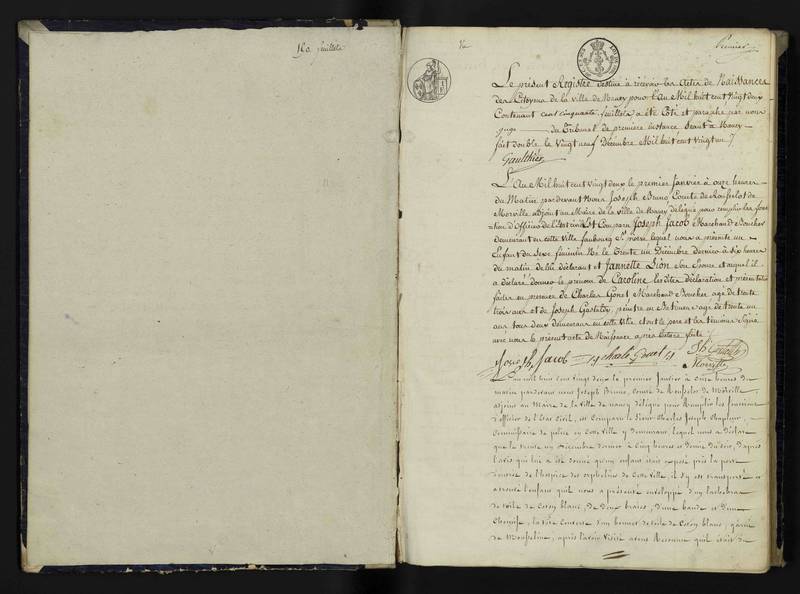 150 feuillets
Premier
Le présent Registre destiné à recevoir les Actes de Naissances
des Citoyens de la ville de Nancy pour l'An Mil huit cent vingt deux
Contenant cent cinquante feuillets a été Coté et paraphé par nous
juge du Tribunal de première instance Séant à Nancy
fait double le vingt neuf Décembre Mil huit cent vingt un
Gaulthier
L'An Mil huit cent vingt deux le premier Janvier à onze heures
du Matin pardevant Nous Joseph Bruno Comte de
Morville adjoint au Maire de la ville de Nancy délégué pour remplir les fonc
=tion d'Officier de l'Etat civil Est Comparu Joseph Jacob Marchand Boucher
demeurant en cette ville faubourg St pierre lequel nous a présenté un
Enfant du Sexe féminin Né le Trente un Décembre dernier à six heures
du matin de lui déclarant et Jannette Lion Son Epouse et auquel il
a déclaré donner le prenom de Caroline lesdites déclaration et présentation
faites en présence de Charles Gonet Marchand Boucher agé de trente
trois ans et de Joseph peintre en Batimens agé de trente un
ans tous deux demeurans en cette ville et ont le pere et les témoins Signé
avec nous le présent acte de Naissance après lecture faite
Joseph Jacob charle Gonet
Morville
L'an mil huit cent vingt deux le premier Janvier à onze heures du
matin pardevant nous Joseph Bruno, Comte de Morville,
adjoint au Maire de la Ville de nancy délégué pour Remplir les fonctions
d'officier de l'Etat Civil, est Comparu le Sieur Charles Joseph Chapleur,
Commissaire de police en Cette Ville y demeurant, lequel nous a déclaré
que le trente un Décembre dernier à Cinq heures et demie du soir, d'après
l'avis qui lui a été donné qu'un enfant était exposé près la porte
d'entrée de l'hospice des orphelins de Cette Ville, il s'y est transporté et
a trouvé l'enfant qu'il nous a présenté enveloppé d'un
de toile de Coton blanc, de deux braies, d'une bande et d'une
Chemise, la tête Couverte d'un bonnet de toile de Coton blanc, garni
de Mousseline, après l'avoir Visité avons Reconnu qu'il était du